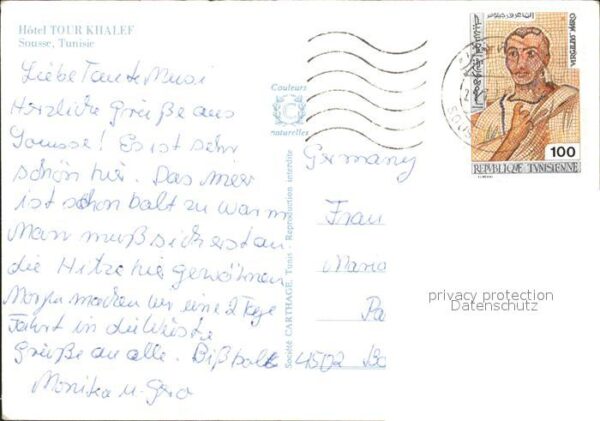 Hôtel TOUR KHALEF
Sousse, Tunisie
Liebe Tante Musi
Herzliche Grüße aus
Sousse! Es ist sehr
schön hier. Das Meer
ist schon balt zu warm
Man muß sich erst an
die Hitze hier gewöhnen
Morgen machen wir eine 2 Tage
Fahrt in die Wüste
Grüße an alle. Biß balt
Monika u. Gero
Couleurs
naturelles
Société CARTHAGE, Tunis - Reproduction interdite
Germany
Frau
Maria
Pa
4502 Bo
100
REPUBLIQUE TUNISIENNE
privacy protection
Datenschutz